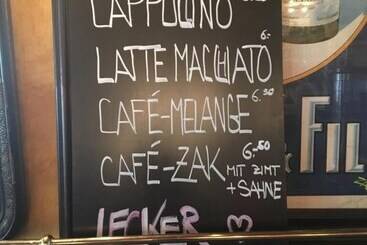 CAPPUCINO
LATTE MACCHIATO 6.-
CAFÉ-MELANGE 6.50
CAFÉ-ZAK 6.-50
MIT ZIMT
+ SAHNE
LECKER
FIL